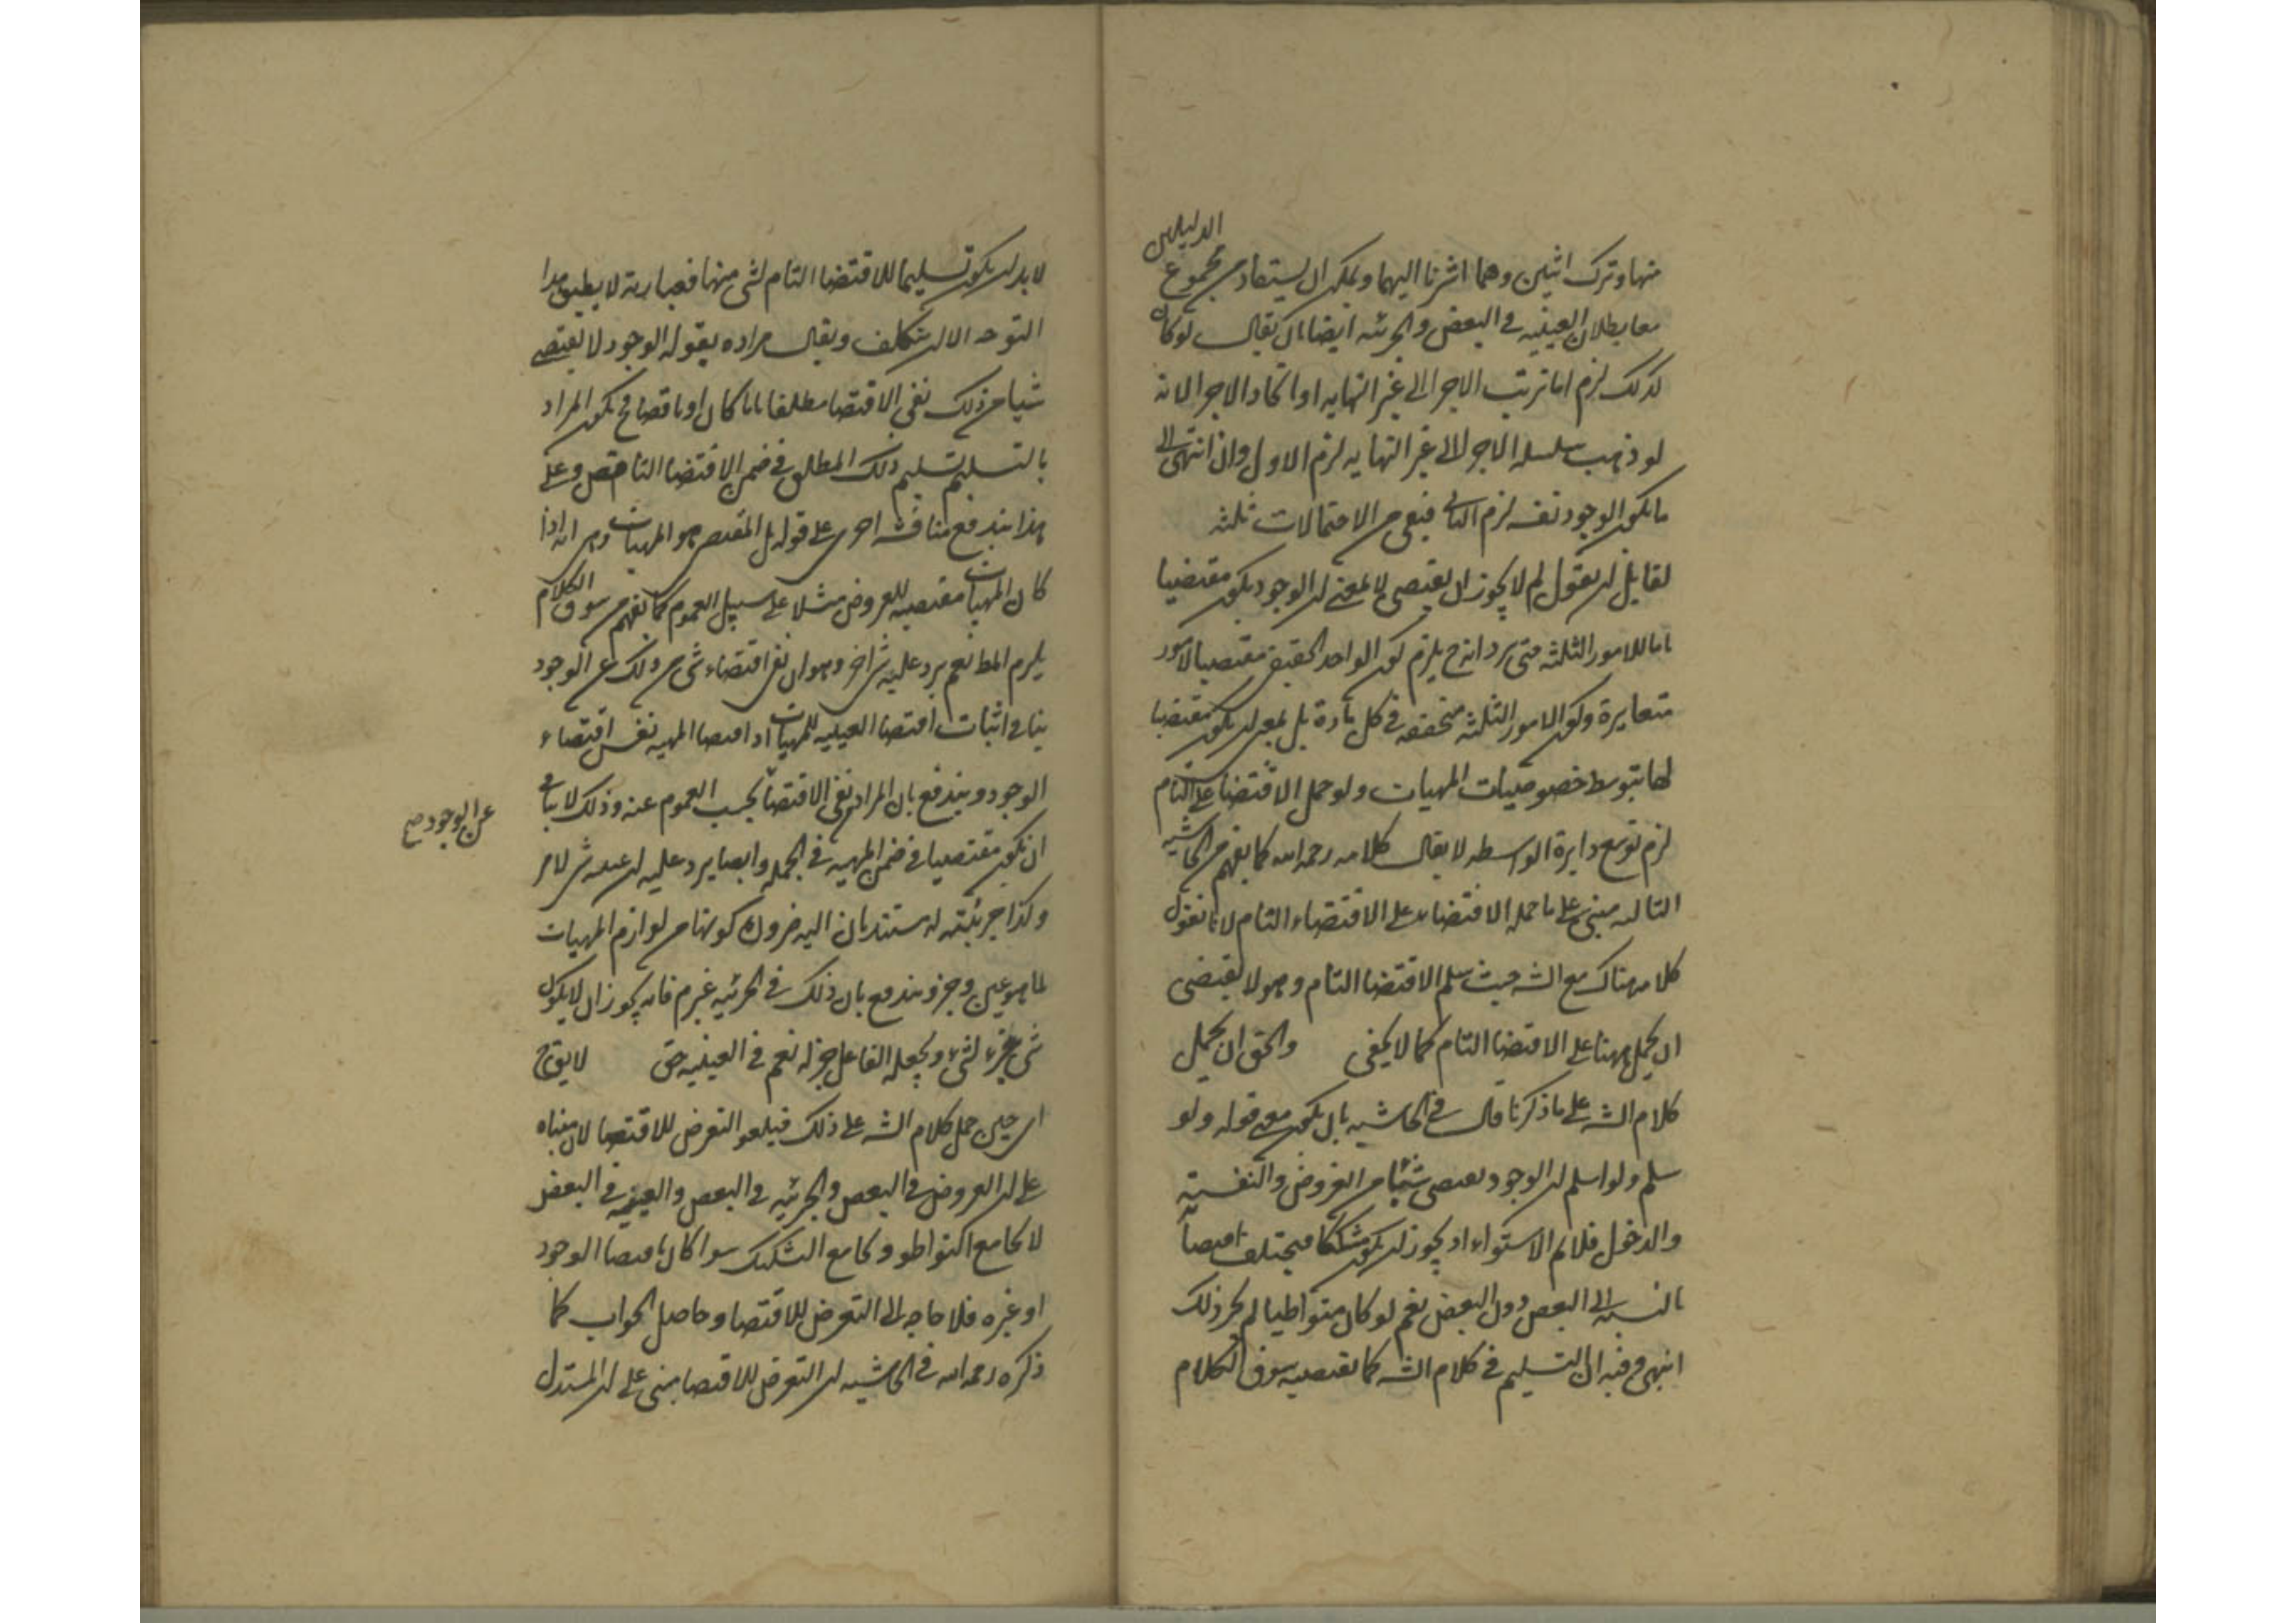 منها وترك اثنين وهما اشرنا اليهما ويمكن ان يستفاد من مجموع الدليلين
معا بطلان العينية في البعض والجزئية ايضا بان يقال لو كان
كذلك لزم اما ترتب الاجزا الى غير النهاية او اتحاد الاجزا لانه
لو ذهب سلسلة الاجزا الى غير النهايه لزم الاول وان انتهى الى
ما يكون الوجود نفسه لزم الثاني فبقى من الاحتمالات ثلثه
لقايل ان يقول لم لا يجوز ان يقتضى لا بمعنى ان الوجود يكون مقتضيا
تاما للامور الثلثه حتى يرد انه ح يلزم كون الواحد الحقيقى مقتضيا لامور
متغايرة وكون الامور الثلثه متحققه في كل مادة بل بمعنى ان يكون مقتضيا
لها بتوسط خصوصيات المهيات ولو حمل الاقتضا على التام
لزم توسع دايرة الواسطه لا يقال كلامه رحمه الله كما يفهم من الحاشية
التاليه مبنى على ما حمل الاقتضاء على الاقتضاء التام لانا نقول
كلامه هناك مع الشه حيث سلم الاقتضا التام وهو لا يقتضى
ان يحمل ههنا على الاقتضا التام كما لا يخفى والحق ان يحمل
كلام الشه على ما ذكرنا قال في الحاشيه بان يكون معنى قوله ولو
سلم ولو سلم ان الوجود يقتضى شيئا من العروض والنفسية
والدخول فلانم الاستواء اذ يجوز ان يكون مشككا فيختلف اقتضا
بالنسبه الى البعض دون البعض نعم لو كان متواطيا لم يجز ذلك
انتهى وفيه ان التسليم في كلام الشه كما يقتضيه سوق الكلام
لا بد ان يكون تسليما للاقتضا التام لشى منها فعبارته لا يطبق هذا
التوجه الا ان يتكلف ويقال مراده بقوله الوجود لا يقتضى
شيا من ذلك نفى الاقتضا مطلقا تاما كان او ناقصا فح يكون المراد
بالتسليم تسليم ذلك المطلق في ضمن الاقتضا الناقص وعلى
هذا يندفع مناقشه اخرى على قوله بل المقتضى هو المهيات وهى انه اذا
كان المهيات مقتضيه للعروض مثلا على سبيل العموم كما يفهم من سوق الكلام
يلزم المط نعم يرد عليه شى اخر وهو ان نفى اقتضاء شى من ذلك عن الوجود
ينافى اثبات اقتضا العينيه للمهيات اذ اقتضا المهيه نفس اقتضاء
الوجود ويندفع بان المراد نفى الاقتضا بحسب العموم عنه وذلك لا ينافى
عن الوجود صح
ان يكون مقتضيا في ضمن المهيه في الجمله وايضا يرد عليه ان عينية شى لامر
وكذا جزئيته له يستندان اليه ضرورة كونهما من لوازم المهيات
لما هو عين وجزء ويندفع بان ذلك في الجزئيه غير م فانه يجوز ان لا يكون
شى جزء لشى ويجعله الفاعل جزا له نعم في العينيه حق لا يق ح
اى حين حمل كلام الشه على ذلك فيلغو التعرض للاقتضا لان مبناه
على ان العروض في البعض والجزئيه في البعض والعينيه في البعض
لا يجامع التواطو ويجامع التشكيك سوا كان باقتضا الوجود
او غيره فلا حاجه الى التعرض للاقتضا وحاصل الجواب كما
ذكره رحمه الله في الحاشيه ان التعرض للاقتضا مبنى على ان المستدل